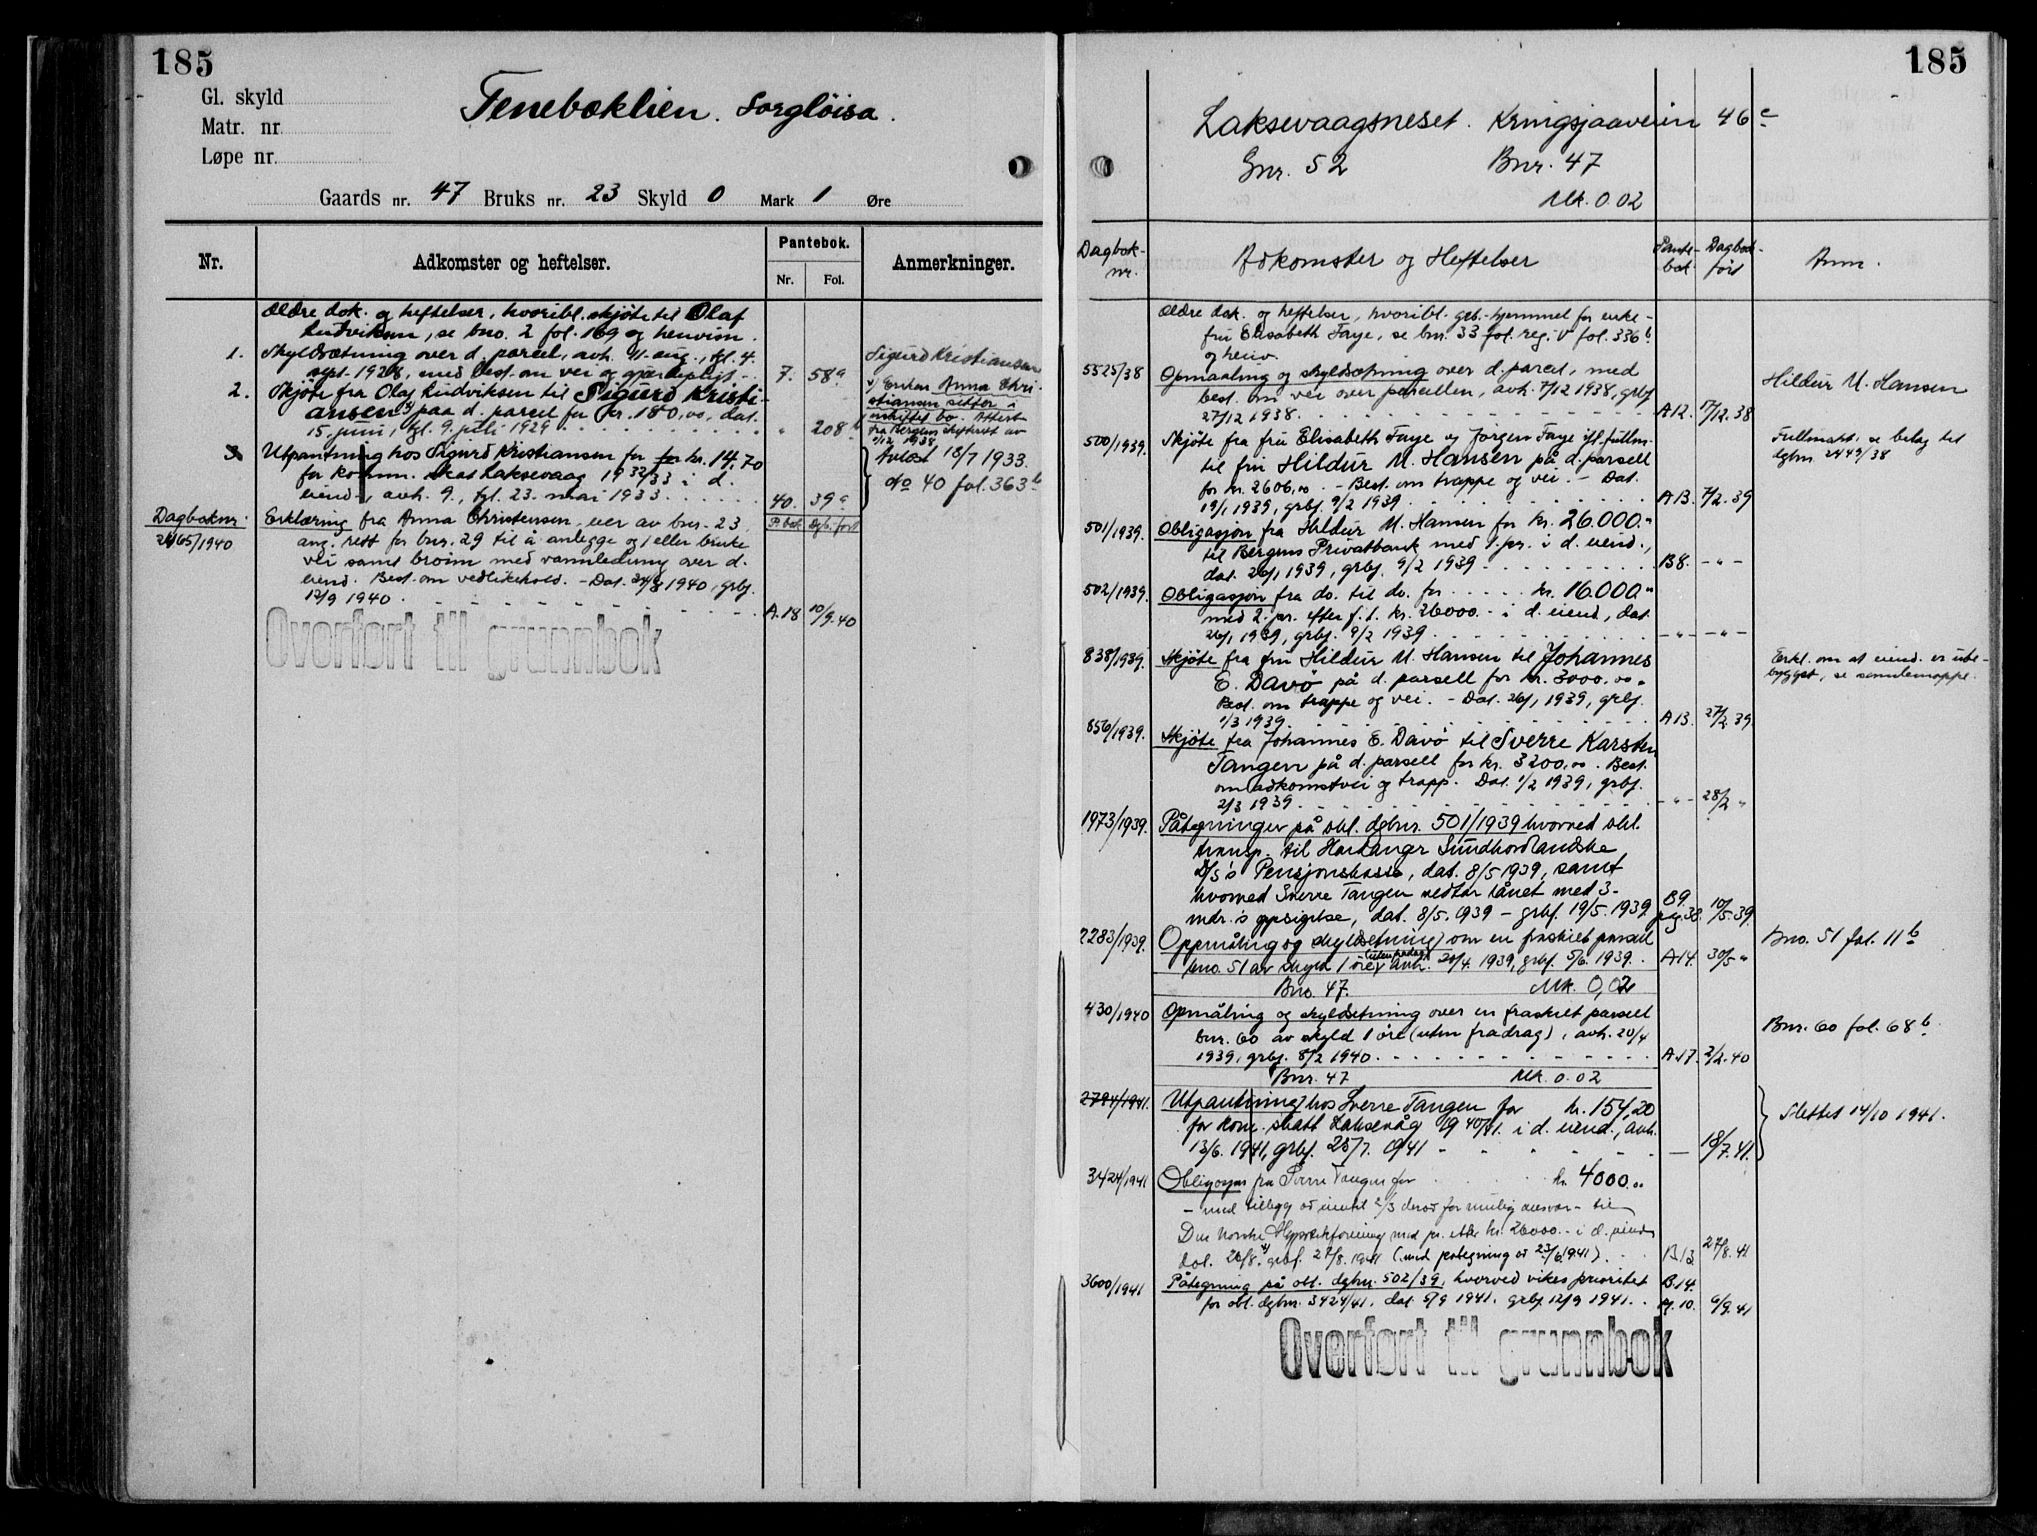 185
Gl. skyld
Matr. nr.
Løpe nr.
Tenebæklien. Sorgløisa.
Gaards nr. 47 Bruks nr. 23 Skyld 0 Mark 1 Øre
Nr.
Adkomster og heftelser.
Pantebok.
Nr.
Fol.
Anmerkninger.
Ældre dok. og heftelser, hvoribl. skjøte til Olaf
Ludviksen, se bno. 2 fol. 169 og henvisn.
1. Skyldsætning over d. parcel, avh. 11. aug., tgl. 4.
sept. 1928, med best. om vei og gjærdepligt - 7. 58a
2. Skjøte fra Olaf Ludviksen til Sigurd Kristi-
ansen x) paa d. parcel for kr. 180,00, dat.
15. juni, tgl. 9. juli 1929 " 208b
Sigurd Kristiansen
x) Enken Anna Chri-
stiansen sitter i
uskiftet bo. Attest
fra Bergens skifterett av
1/12 1938
3. Utpantning hos Sigurd Kristiansen for kr. 14,70
for komm. skat Laksevaag 1932/33 i d.
eiend., avh. 9., tgl. 23. mai 1933 40. 39a
Avløst 18/7 1933.
No 40 fol. 363b
Dagboknr.
2465/1940
P. bok Dgb. ført
Erklæring fra Anna Christensen, eier av bnr. 23,
ang. rett for bnr. 29 til å anlegge og/eller bruke
vei samt broim med vannledning over d.
eiend. Best. om vedlikehold. - Dat. 24/8 1940, grbf.
12/9 1940 A.18 10/9.40
Overført til grunnbok
185
Laksevaagsneset. Kringsjaaveien 46c
Gnr. 52 Bnr. 47
Mk. 0.02
Dagbok-
nr.
Adkomster og Heftelser
Pante-
bok.
Dagbok-
ført
Anm.
Ældre dok. og heftelser, hvoribl. grb.-hjemmel for enke-
fru Elisabeth Faye, se bnr. 33 fol. reg. V fol. 336b
og henv.
5525/38 Opmaaling og skyldsetning over d. parcel, med
best. om vei over parcellen, avh. 7/12 1938, grbf.
27/12 1938. A12. 7/12.38
Hildur M. Hansen
500/1939. Skjøte fra fru Elisabeth Faye og Jørgen Faye ifl. fullm.
til fru Hildur M. Hansen på d. parsell
for kr. 2606,00. - Best. om trappe og vei. - Dat.
19/1 1939, grbf. 9/2 1939 A13. 7/2.39
Fullmakt: se bilag til
dgbnr. 2449/38
501/1939. Obligasjon fra Hildur M. Hansen for kr. 26.000.-
til Bergens Privatbank med 1. pr. i d. eiend.,
dat. 26/1 1939, grbf. 9/2 1939 B8. - " -
502/1939. Obligasjon fra do. til do. for kr. 16.000.-
med 2. pr. efter f. t. kr. 26000.- i d. eiend, dat.
26/1 1939, grbf. 9/2 1939 - " - - " -
838/1939. Skjøte fra fru Hildur M. Hansen til Johannes
E. Davø på d. parsell for kr. 3000.00.
Best. om trappe og vei. - Dat. 26/1 1939, grbf.
1/3 1939 A13. 27/2.39.
Erkl. om at eiend. er ube-
bygget, se samlemappe.
856/1939. Skjøte fra Johannes E. Davø til Sverre Karsten
Tangen på d. parsell for kr. 3200,00. Best.
om adkomstvei og trapp. Dat. 1/2 1939, grbf.
2/3 1939 - " - 28/2 "
1973/1939. Påtegninger på obl. dgbnr. 501/1939 hvorved obl.
transp. til Hardanger Sunnhordlandske
D/S's Pensjonskasse, dat. 8/5 1939, samt
hvorved Sverre Tangen vedtar lånet med 3-
mdr.'s opsigelse, dat. 8/5. 1939 - grbf. 19/5. 1939. B9. pg. 38. 10/5.39.
2283/1939. Oppmåling og skyldsetning) om en fraskilt parsell
bno. 51 av skyld 1 øre (uten fradrag) avh. 20/4. 1939, grbf. 5/6. 1939. A14. 30/5 "
Bno. 51 fol. 11b
Bno. 47. Mk. 0,02
430/1940 Opmåling og skyldsetning over en fraskilt parsell
bnr. 60 av skyld 1 øre (uten fradrag), avh. 20/4
1939, grbf. 8/2 1940 A.17. 2/2.40
Bnr. 60 fol. 68b.
Bnr. 47 Mk. 0.02
2794/1941. Utpantning hos Sverre Tangen for kr. 154,20
for kom. skatt Laksevåg 1940/41. i d. eiend., avh.
13/6. 1941, grbf. 25/7. 1941 - 18/7.41.
Slettet 14/10 1941.
3424/1941 Obligasjon fra Sverre Tangen for kr. 4000.00
- med tillegg av inntil 2/3 derav for mulig ansvar - til
Den Norske Hypotekforening med pr. etter kr. 26000.- i d. eiend.
dat. 26/8. grbf. 27/8. 1941 (med påtegning av 23/6 1941). B13 27/8.41
3600/1941 Påtegning på obl. dgbnr. 502/39, hvorved vikes prioritet
for obl. dgbnr. 3424/41. dat. 5/9 1941. grbf. 12/9 1941. B.14. pg. 10. 6/9.41
Overført til grunnbok